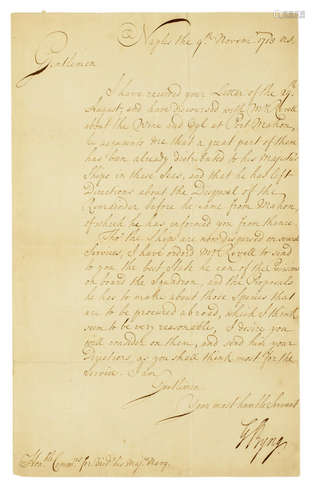 Naples the 9th Novem. 1718 NS.
Gentlemen
I have received your Letter of the 29th
August, and have discoursed with Mr Revell
about the Wine and Oyl at Port Mahon,
he acquaints me that a great part of them
has been already distributed to his Majestys
Ships in these Seas, and that he has left
Directions about the Disposal of the
Remainder before he came from Mahon,
of which he has informed you from thence.
Tho' the Ships are now dispersed on several
Services, I have ordred Mr Revell to send
to you the best State he can of the Provisions
on board the Squadron, and the Proposals
he has to make about those Species that
are to be procured abroad, which I think
seem to be very reasonable, I desire you
will consider on them, and send him your
Directions, as you shall think most for the
Service. I am
Gentlemen
Your most humble Servant
G Byng
Hon.ble Comm.rs for Vict.g his Maj.s Navy.